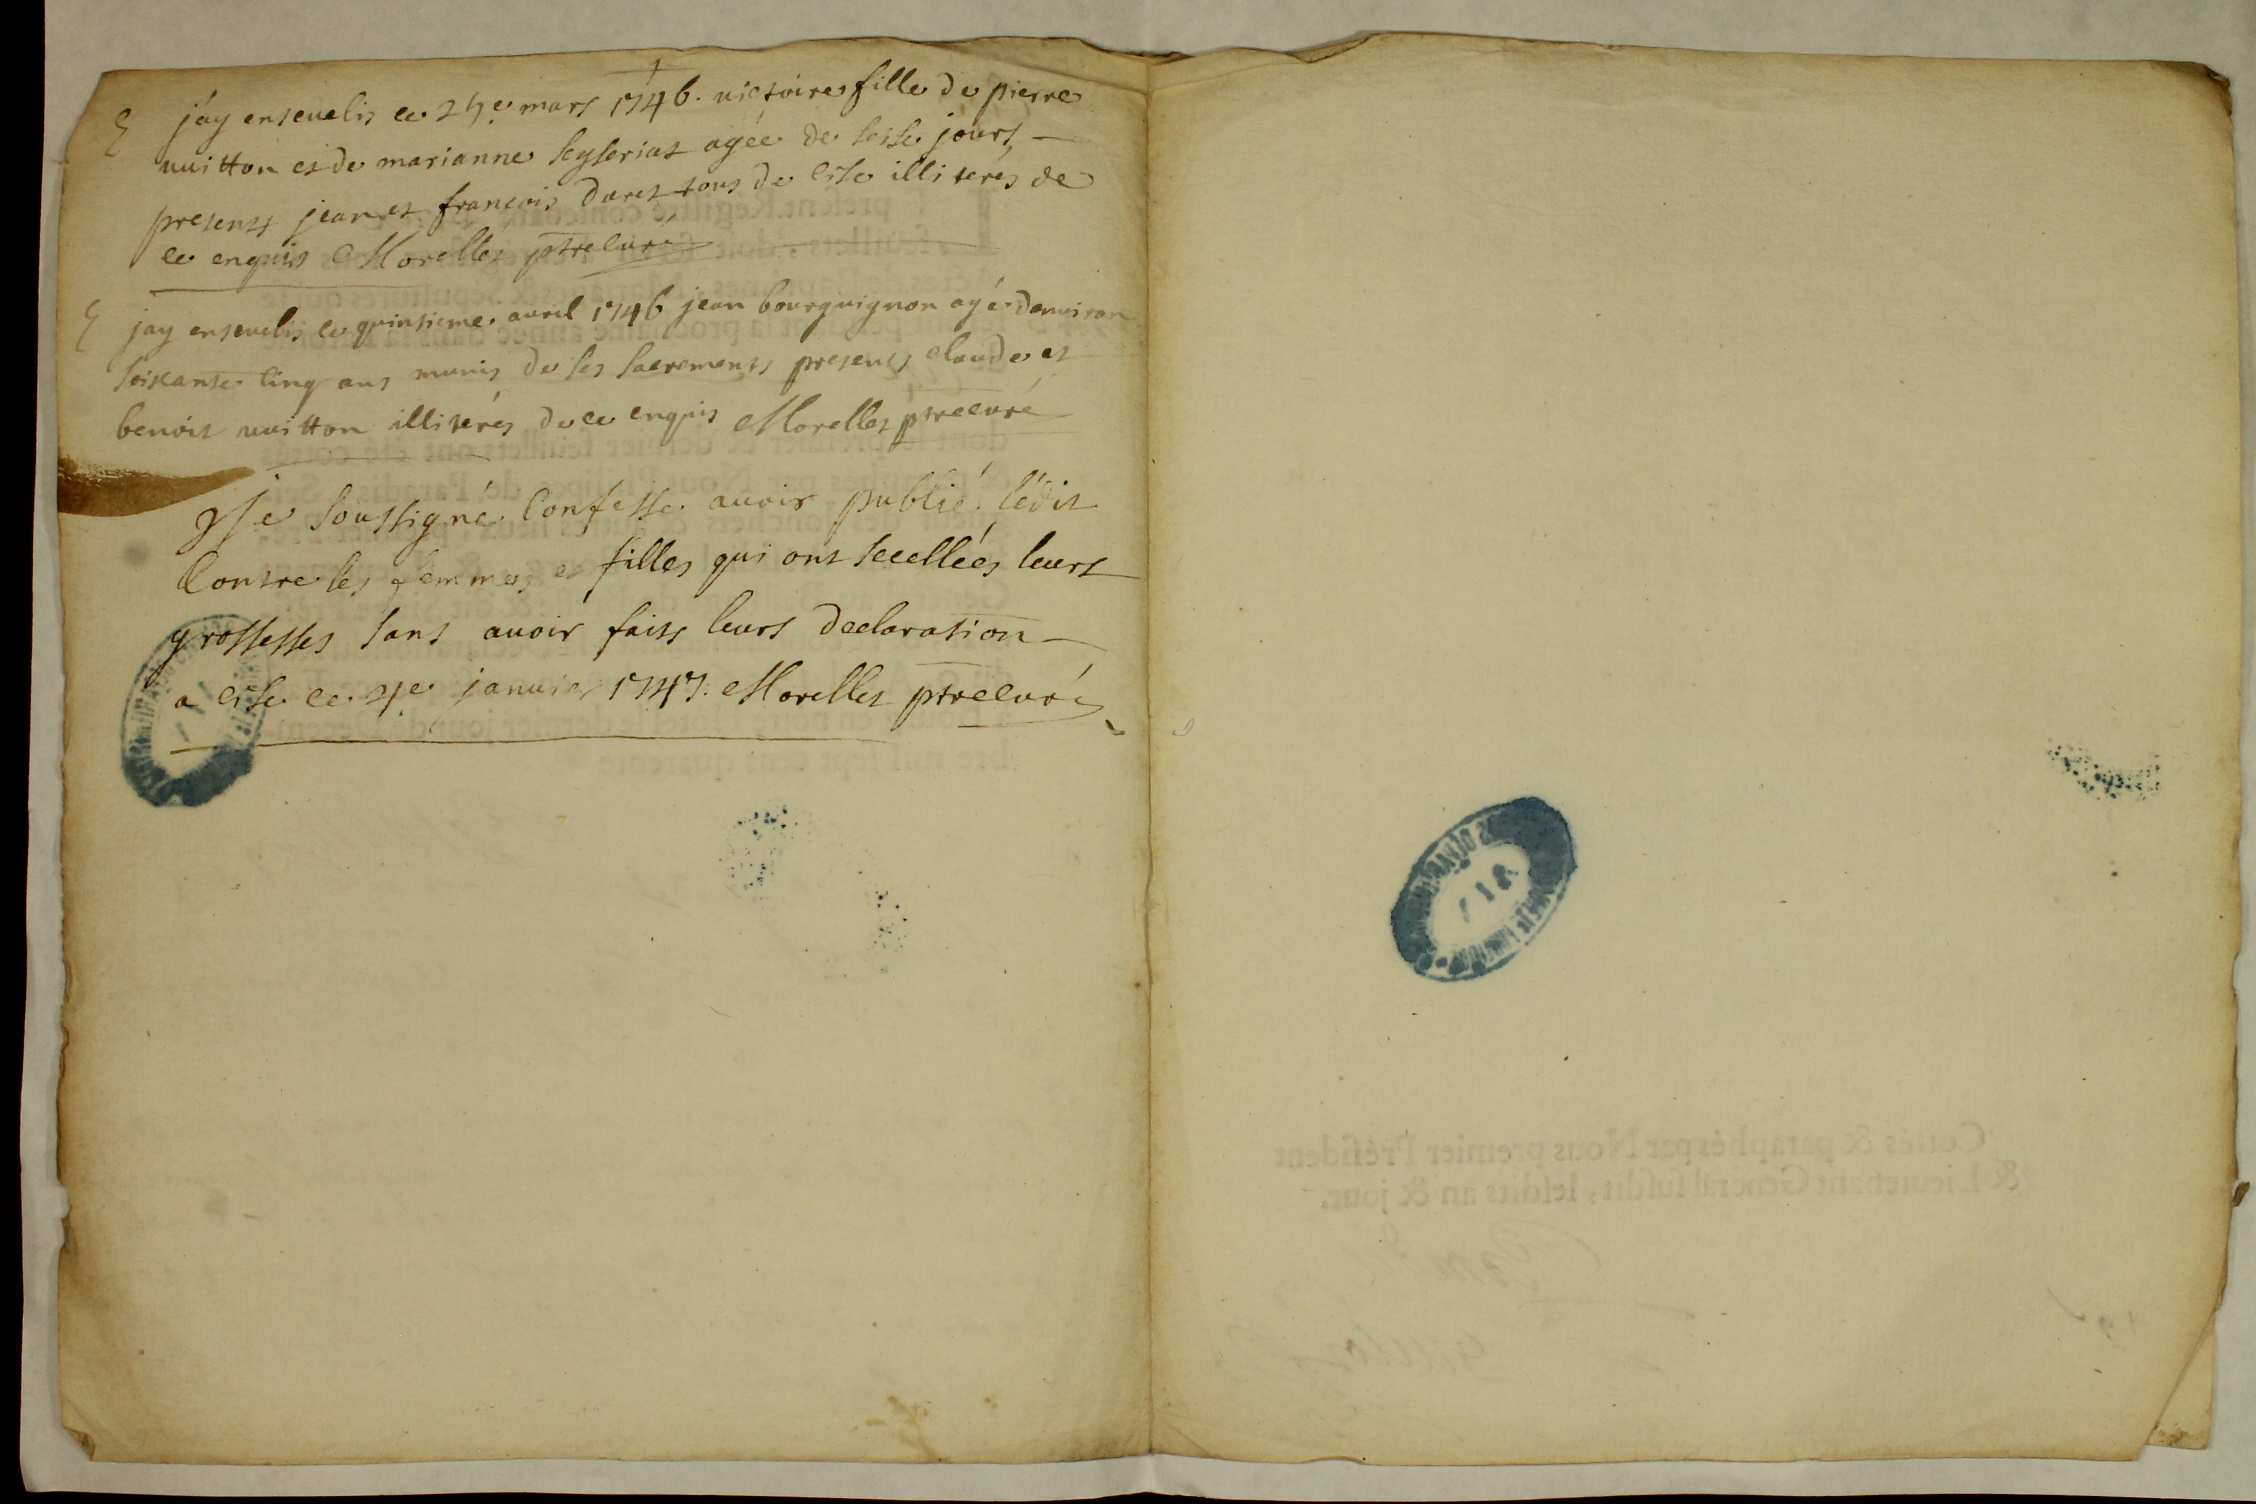 E jay enseuelis ce 25e mars 1746. uictoire fille de pierre
uuitton et de marianne seyseriat agée de seise jours
presents jean et francois duret tous de cise illiterés de
ce enquis Morellet ptre curé
E jay enseuelis ce quinsieme auril 1746 jean bourguignon agé denuiron
soixante cinq ans munis de ses sacrements presents claude et
benoit uuitton illiterés de ce enquis Morellet ptre curé
Je soussigné confesse auoir publié lédit
contre les femmes et filles qui ontecellées leurs
grossesses sans auoir faits leurs declaration
a cise ce janvier 1747. Morellet ptre curé
Cottés & paraphés par Nous premier Président
& Lieutenant Général susdit, lesdits an & jour.